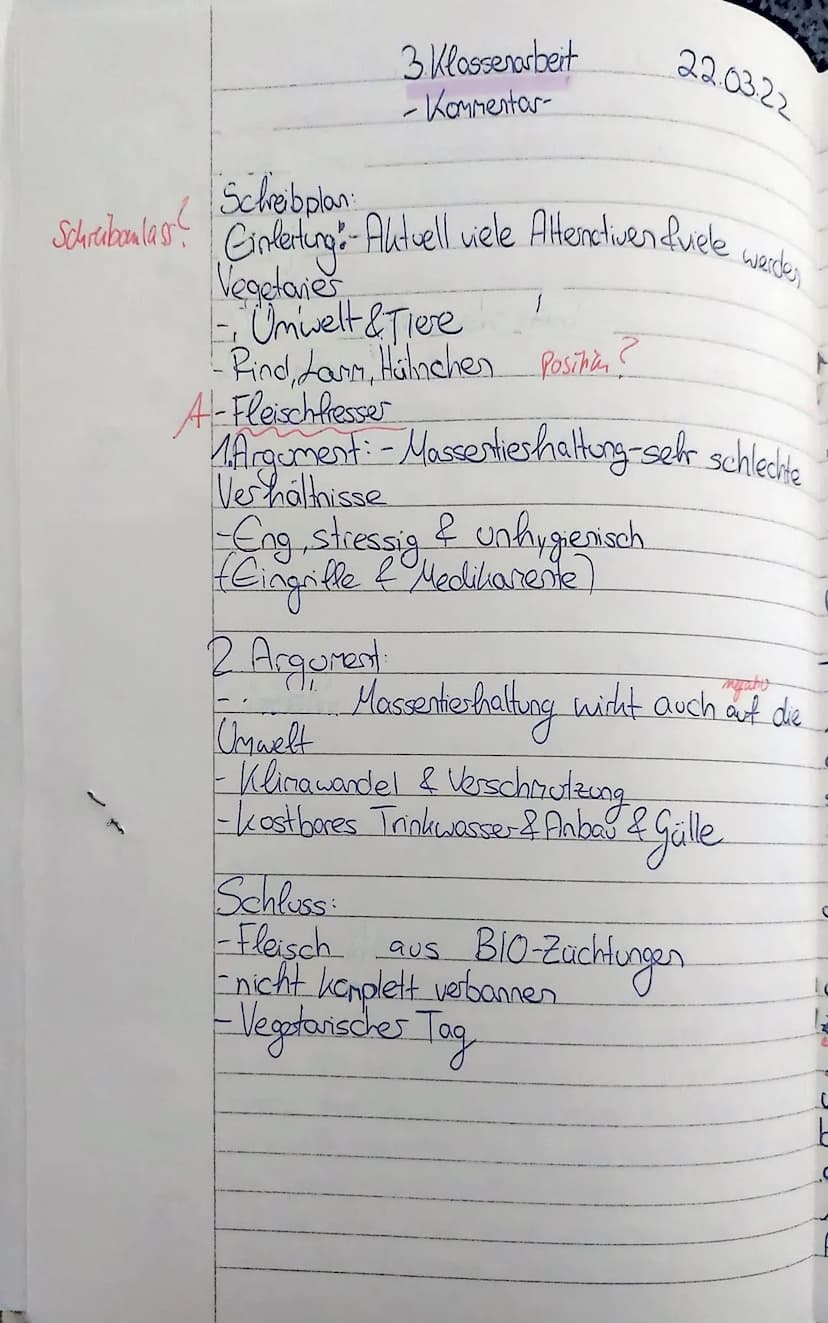 3. Klassenarbeit 22.03.22
- Kommentar -
Schreibplan:
Schreibanlass?
Einleitung: - Aktuell viele Alternativen & viele werden
Vegetarier
- Umwelt & Tiere
- Rind, Lamm, Hühnchen Position?
A - Fleischfresser
1. Argument: - Massentierhaltung - sehr schlechte
Verhältnisse
- Eng, stressig & unhygienisch
(Eingriffe & Medikamente)
2 Argument:
- Massentierhaltung wirkt auch negativ auf die
Umwelt
- Klimawandel & Verschmutzung
- kostbares Trinkwasser & Anbau & Gülle
Schluss:
- Fleisch aus BIO-Züchtungen
- nicht komplett verbannen
- Vegetarischer Tag